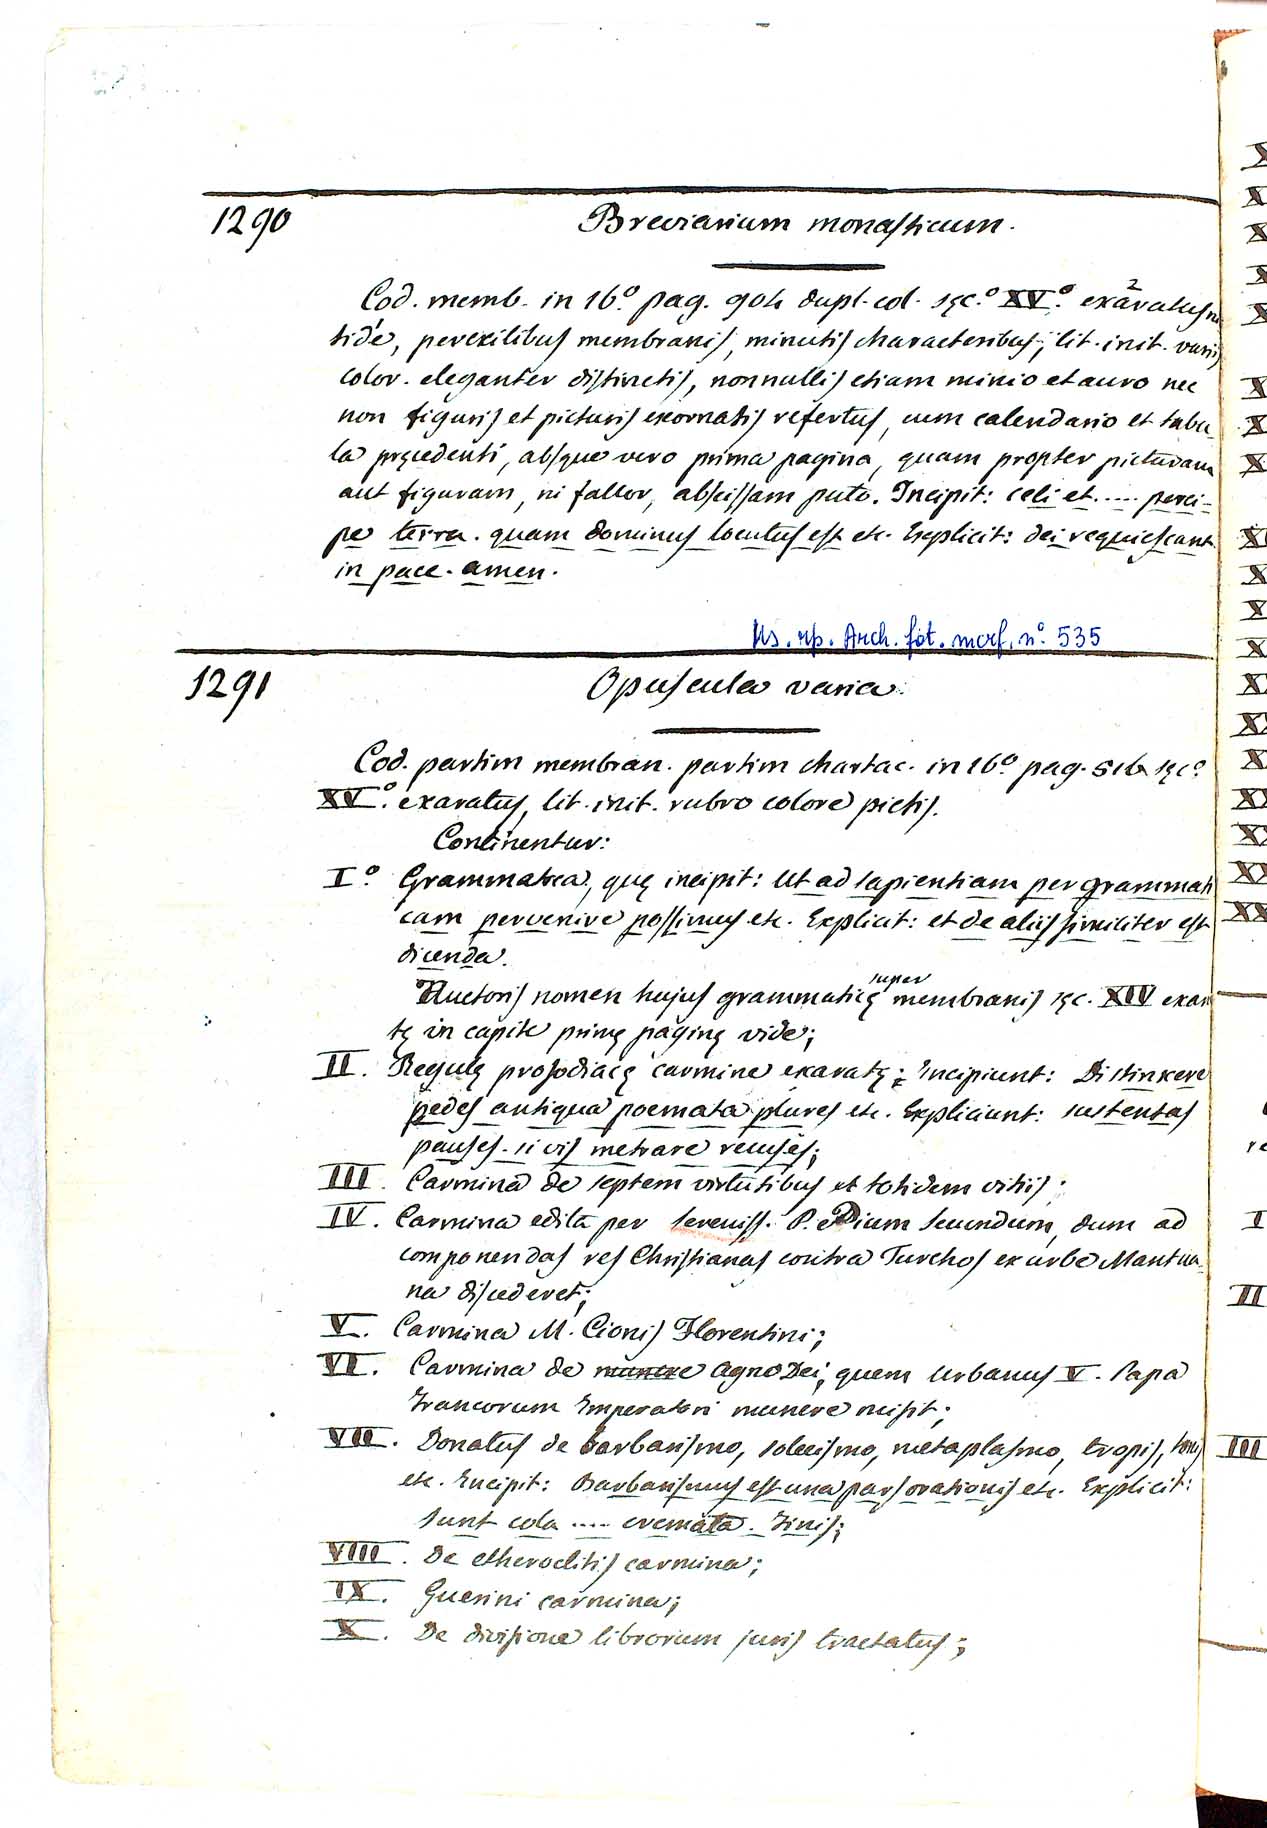 1290
Breviarium monasticum.
Cod. memb. in 16º. pag. 904 dupl. col. sęc.º XVº. exaratus ni
tidé, perexilibus membranis, minutis characteribus, lit. init. variis
color. eleganter distinctis, nonnullis etiam minio et auro nec
non figuris et picturis exornatis refertus, cum calendario et tabu_
la pręcedenti, absque vero prima pagina, quam propter picturam
aut figuram, ni fallor, abscissam puto. Incipit: celi et ..... perci_
pe terra. quam dominus locutus est etc. Explicit: dei requiescant
in pace. amen.
Us. rp. Arch. fot. mcrf. nº. 535
1291
Opuscula varia.
Cod. partim membran. partim chartac. in 16º. pag. sęcº
XVº. exaratus, lit. init. rubro colore pictis.
Continentur:
Iº. Grammatica, quę incipit: Ut ad sapientiam per grammati
cam pervenire possimus etc. Explicit: et de aliis similiter est
dicenda.
Auctoris nomen hujus grammaticę super membranis sęc. XIV exara
tę in capite primę paginę vide;
II. Regulę prosodiacę carmine exaratę; Incipiunt: Distinxere
pedes antiqua poemata plures etc. Expliciunt: sustentas
pauses. si vis metrare recuses;
III. Carmina de septem virtutibus et totidem vitiis;
IV. Carmina edita per sereniss. P. Pium secundum, dum ad
componendas res Christianas contra Turchos ex urbe Mantua_
na discederet;
V. Carmina M. Cionis Florentini;
VI. Carmina de munere Agno Dei, quem Urbanus V. Papa
Francorum Imperatori munere misit;
VII. Donatus de barbarismo, solecismo, metaplasmo, tropis,
etc. Incipit: Barbarismus est una pars orationis etc. Explicit:
sunt cola .... cremata. Finis;
VIII. De etheroclitis carmina;
IX. Guerini carmina;
X. De divisione librorum juris tractatus;